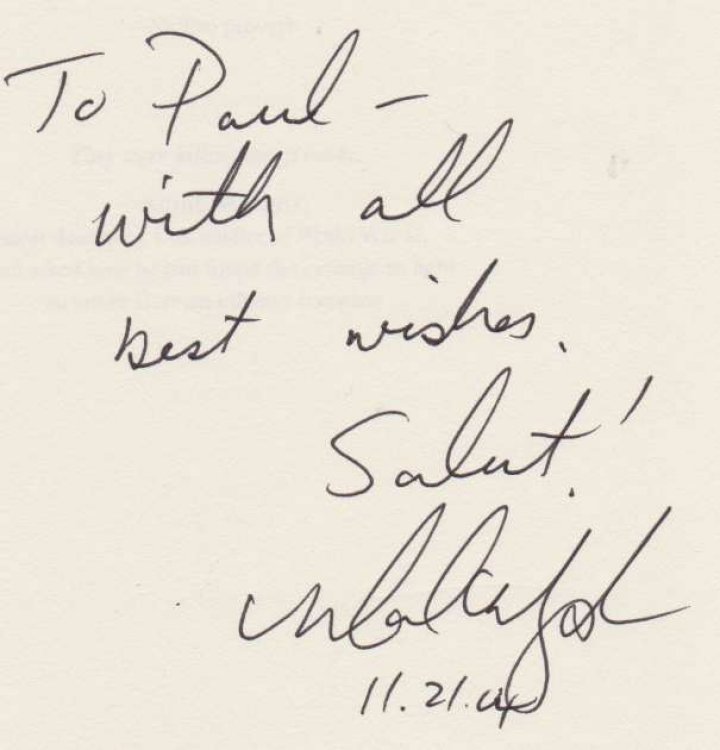 To Paul –
with all
best wishes.
Salut!
11.21.